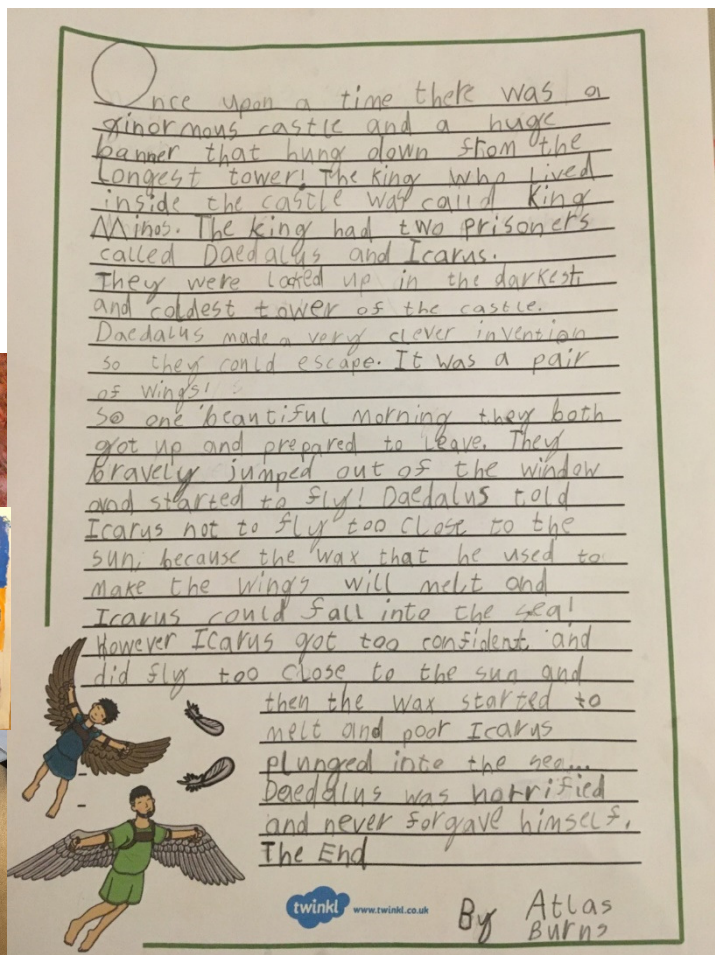 Once upon a time there was a
ginormous castle and a huge
banner that hung down from the
Longest tower! The king who lived
inside the castle was calld King
Minos. The king had two prisoners
called Daedalus and Icarus.
They were locked up in the darkest,
and coldest tower of the castle.
Daedalus made a very clever invention
so they could escape. It was a pair
of wings!
So one beautiful morning they both
got up and prepared to Leave. They
bravely jumped out of the window
and started to fly! Daedalus told
Icarus not to fly too close to the
sun, because the wax that he used to
make the wings will melt and
Icarus could fall into the sea!
However Icarus got too confident, and
did fly too close to the sun and
then the wax started to
melt and poor Icarus
plunged into the sea...
Daedalus was horrified
and never forgave himself.
The End
twinkl www.twinkl.co.uk
By Atlas
Burns